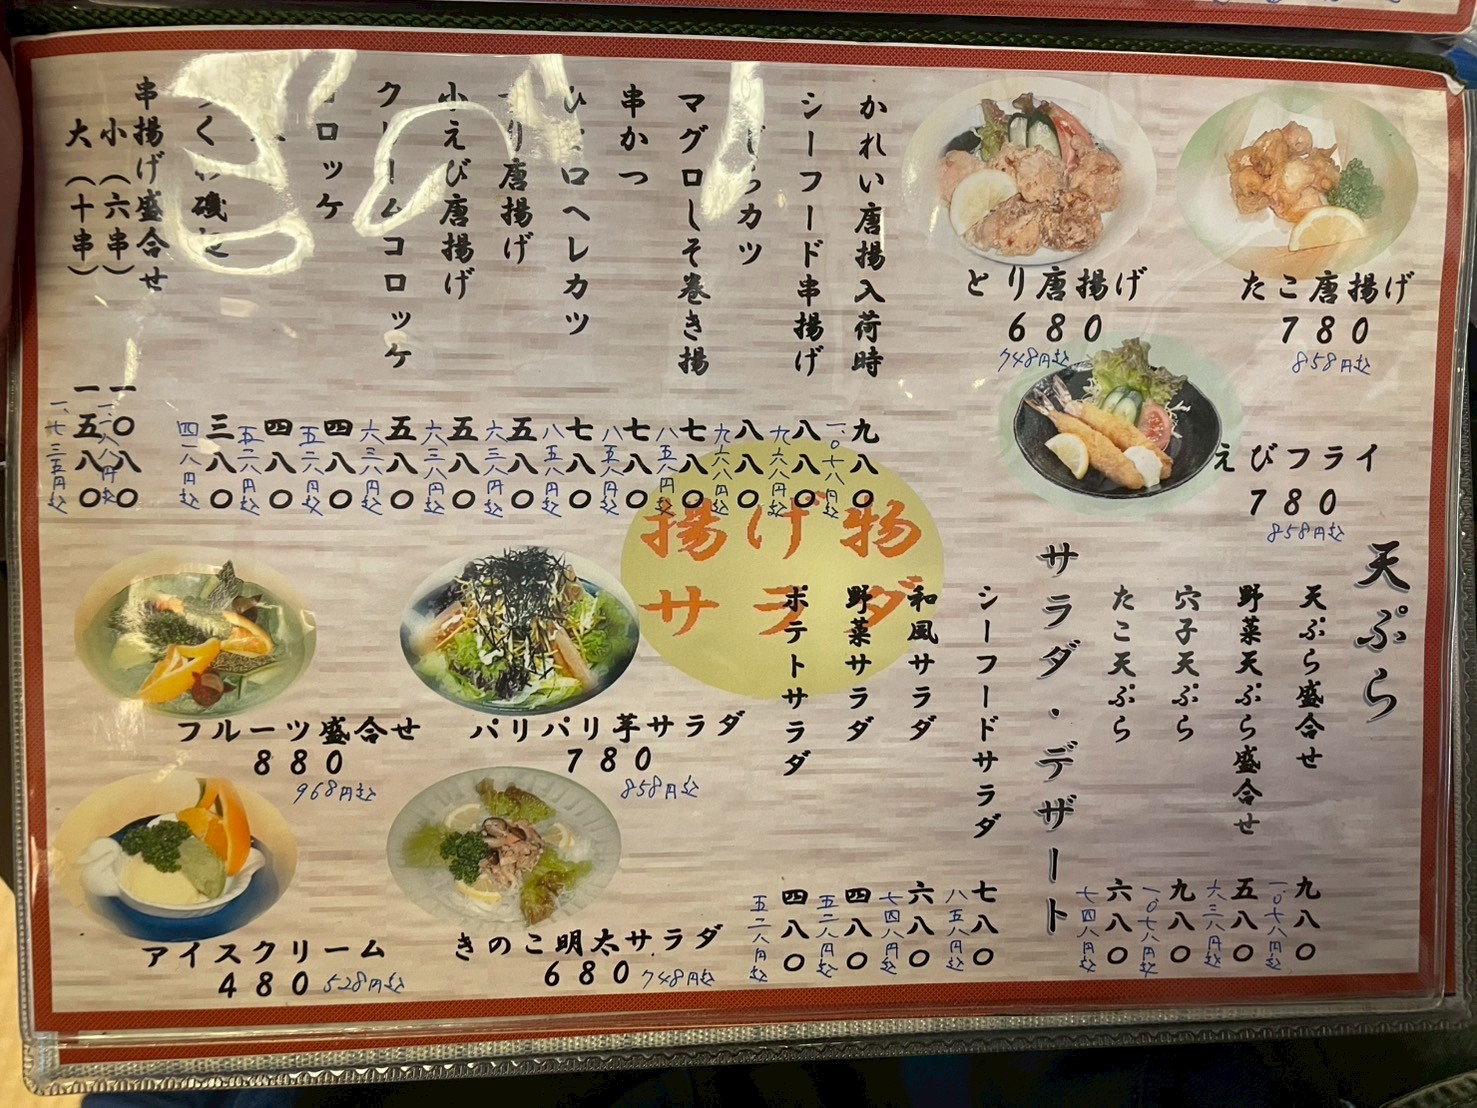 とり唐揚げ
680
748円込
たこ唐揚げ
780
858円込
えびフライ
780
858円込
かれい唐揚入荷時
九八〇
一、〇七八円込
シーフード串揚げ
八八〇
九六八円込
カツ
八八〇
九六八円込
マグロしそ巻き揚
七八〇
八五八円込
串かつ
七八〇
八五八円込
ロヘレカツ
七八〇
八五八円込
り唐揚げ
五八〇
六三八円込
小えび唐揚げ
五八〇
六三八円込
クリームコロッケ
五八〇
六三八円込
ロッケ
四八〇
五二八円込
四八〇
五二八円込
磯
三八〇
四一八円込
串揚げ盛合せ
小(六串)
一〇八〇
一、一八八円込
大(十串)
一五八〇
一、七三五円込
揚げ物
サラダ
天ぷら
天ぷら盛合せ
九八〇
一、〇七八円込
野菜天ぷら盛合せ
五八〇
六三八円込
穴子天ぷら
九八〇
一、〇七八円込
たこ天ぷら
六八〇
七四八円込
サラダ・デザート
シーフードサラダ
七八〇
八五八円込
和風サラダ
六八〇
七四八円込
野菜サラダ
四八〇
五二八円込
ポテトサラダ
四八〇
五二八円込
パリパリ芋サラダ
780
858円込
フルーツ盛合せ
880
968円込
きのこ明太サラダ
680 748円込
アイスクリーム
480 528円込